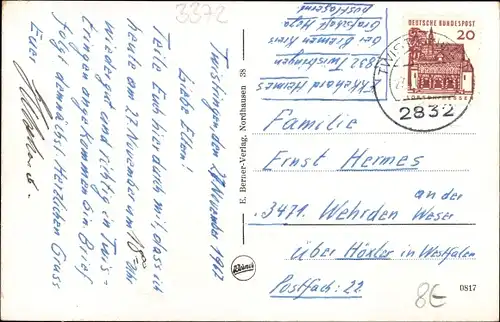 3372
Twistringen, den 27. November 1967
Liebe Eltern!
Teile Euch hier durch mit, dass ich
heute am 27. November am 18 Uhr
wieder gut und richtig in Twis-
tringen angekommen bin Brief
folgt demnächst. Herzlichen Gruss
Euer
E. Berner-Verlag, Nordhausen 38
Berner
Ekkehard Hermes
2832 Twistringen
Bez Bremen Kreis
Grafschaft Hoya
Postlagernd
DEUTSCHE BUNDESPOST
20
LORSCH/HESSEN
TWIST
2832
Familie
Ernst Hermes
3471. Wehrden an der Weser
über Höxter in Westfalen
Postfach: 22
0817
8€